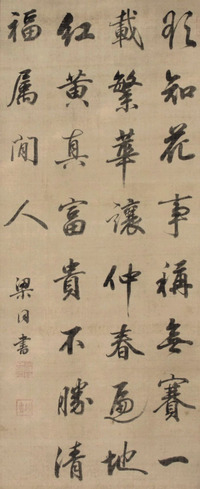 欲知花事稱無賽一
載繁華讓仲春遍地
紅黃真富貴不勝清
福属閒人
梁同書